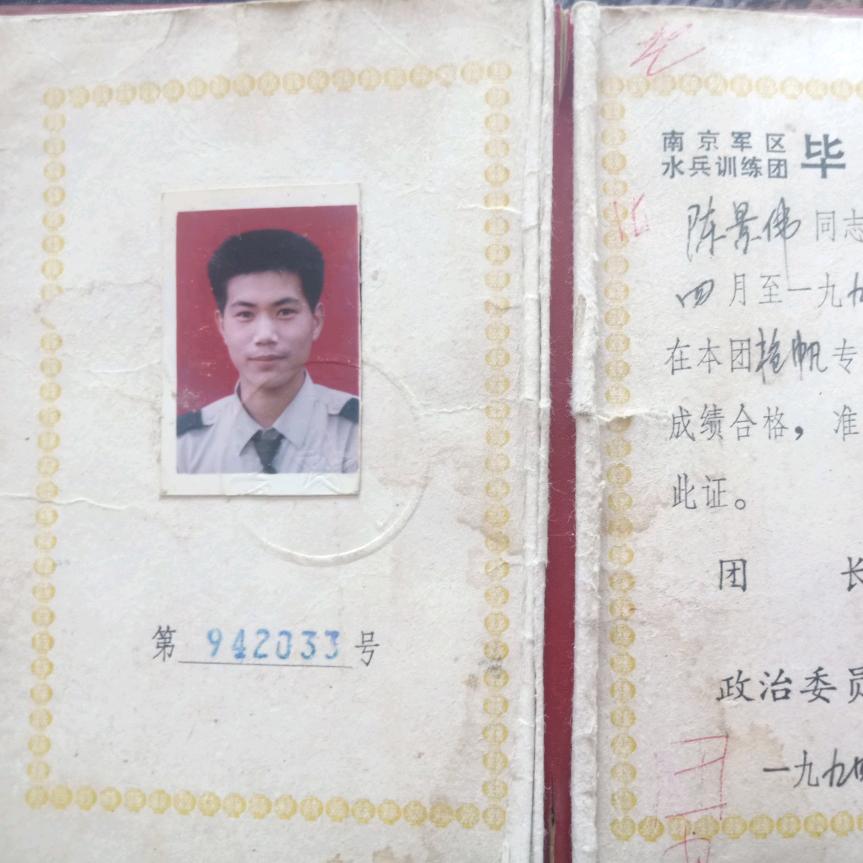 第 942033 号
南京军区
水兵训练团 毕
陈景伟 同志
四月至一九九
在本团枪帆专
成绩合格，准
此证。
团 长
政治委员
一九九四